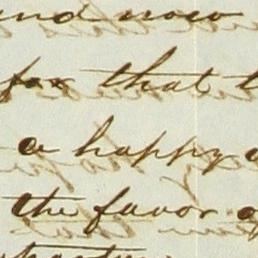 and now
for that
a happy
the favor of